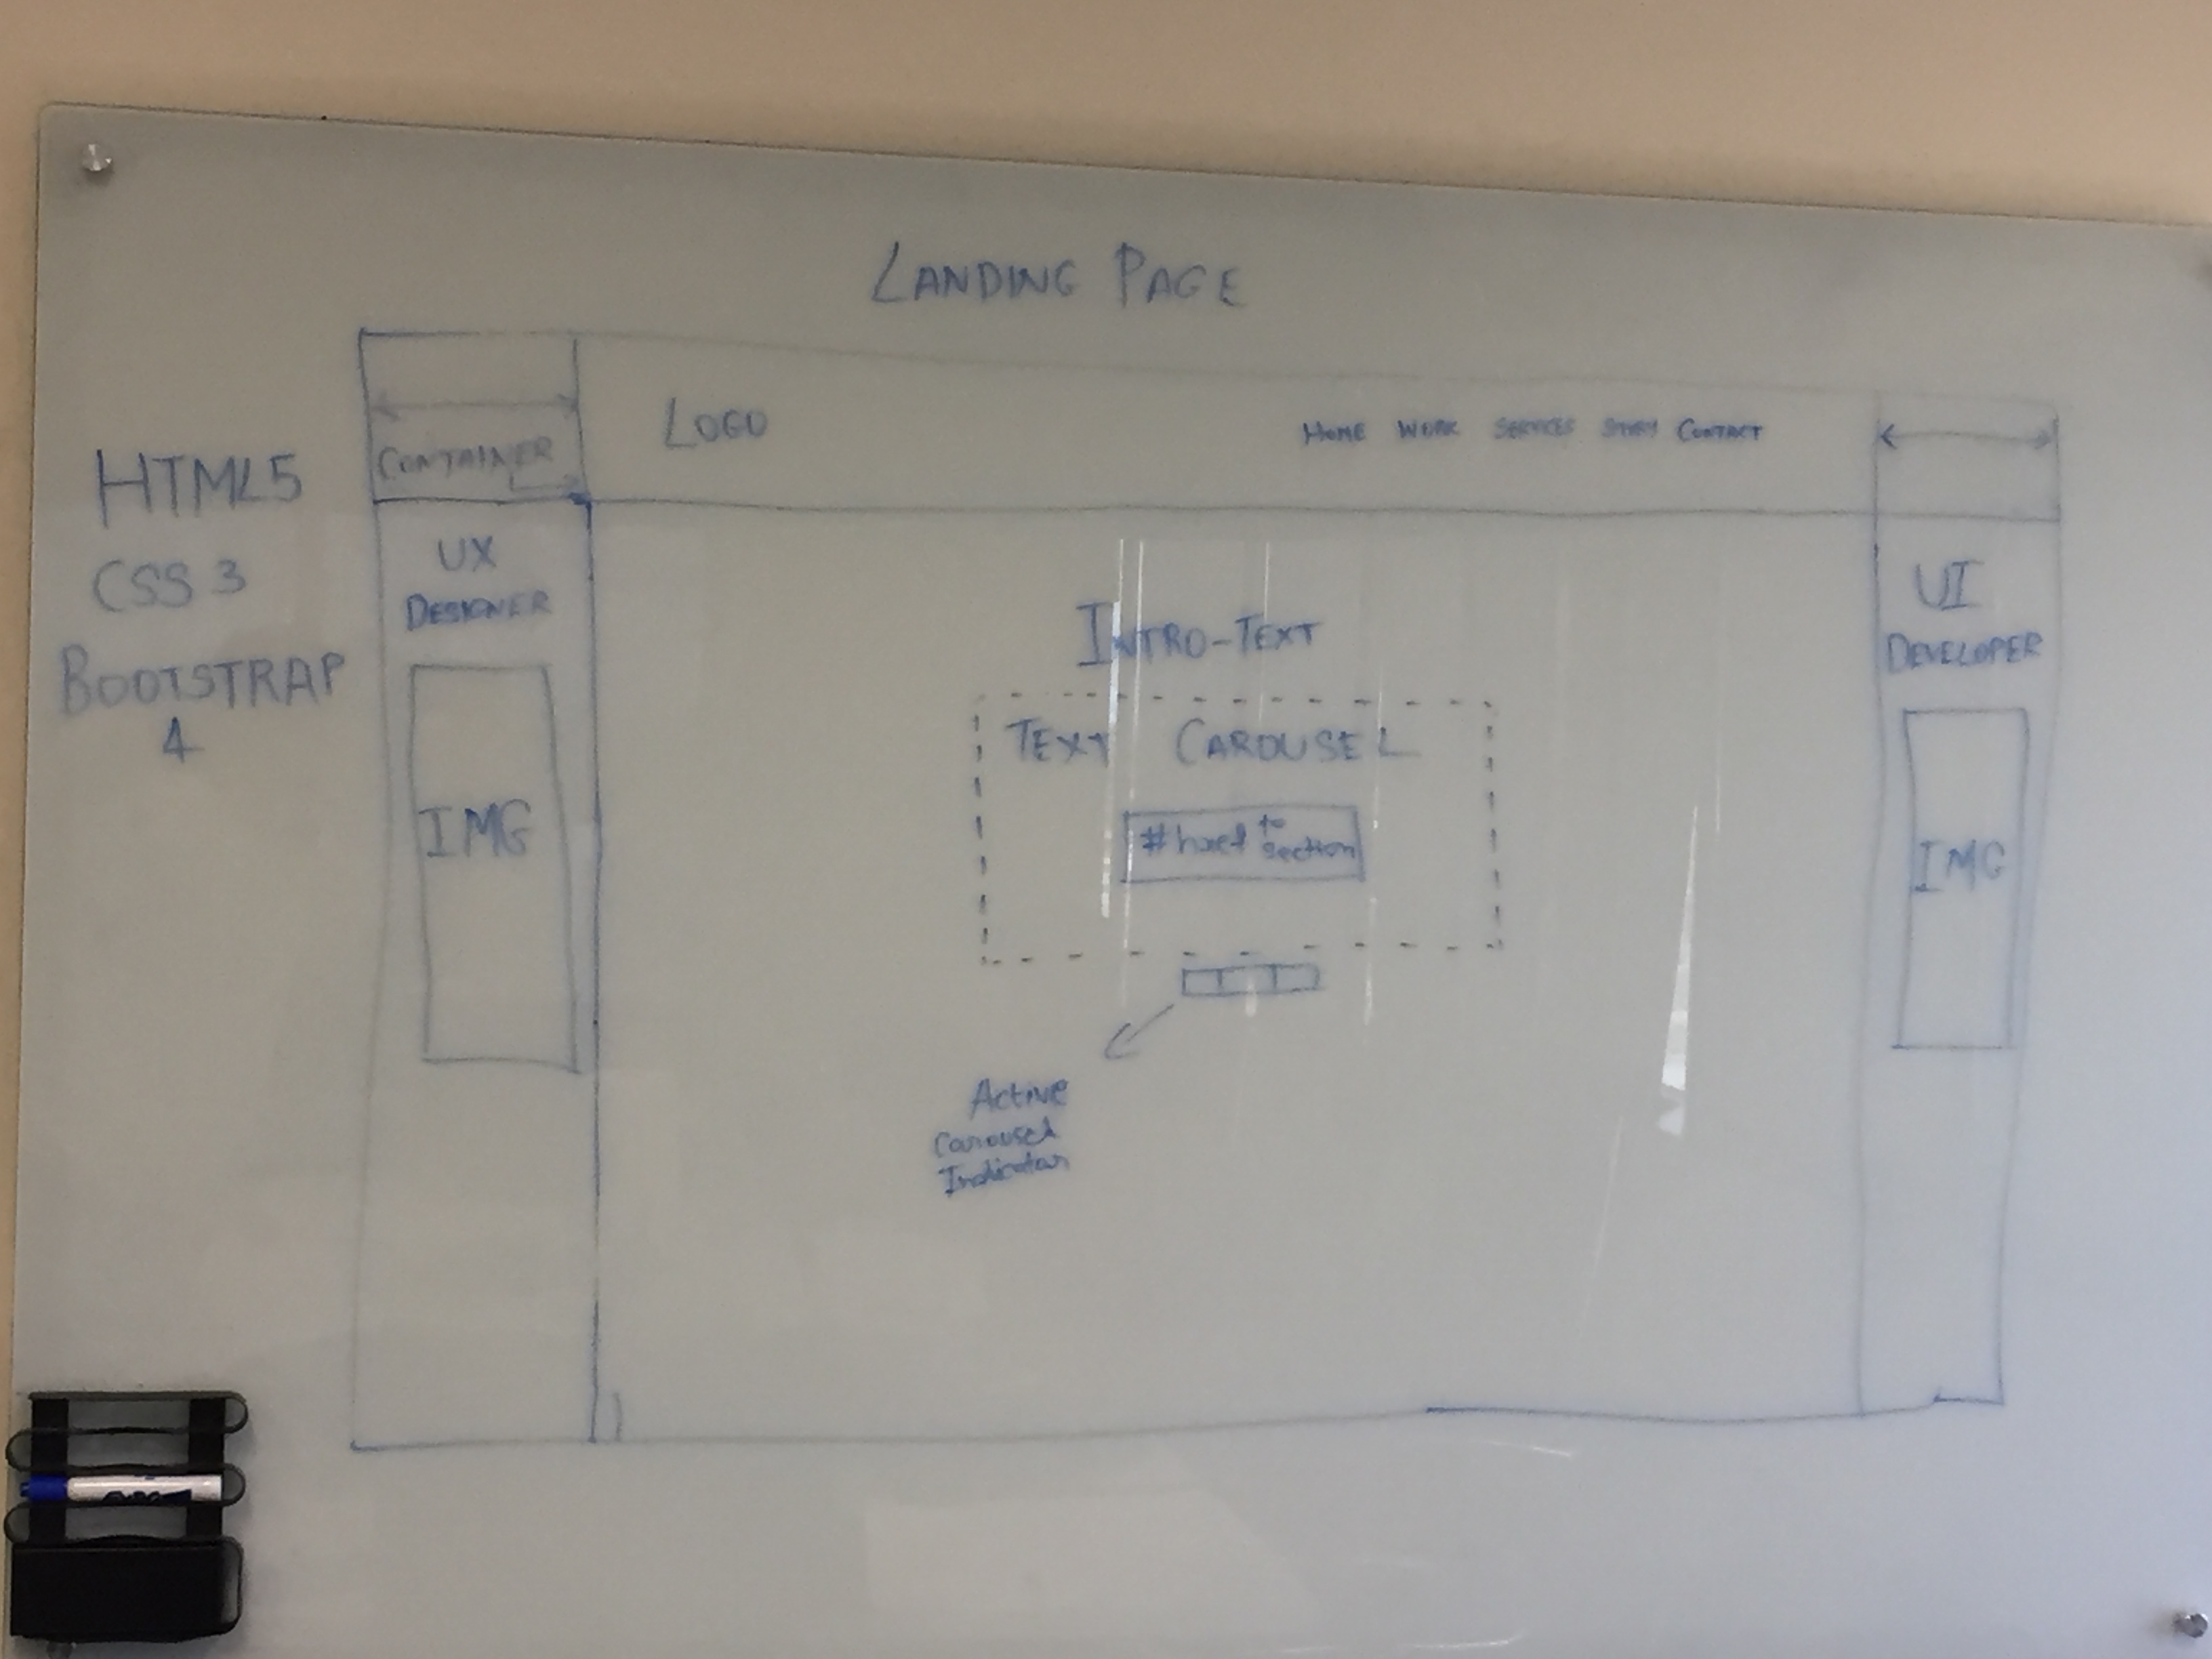 LANDING PAGE
HTML5
CSS 3
BOOTSTRAP
4
CONTAINER
LOGO
HOME WORK SERVICES STORY CONTACT
UX
DESIGNER
IMG
INTRO-TEXT
TEXT CAROUSEL
#href to
section
Active
Carousel
Indicator
UI
DEVELOPER
IMG